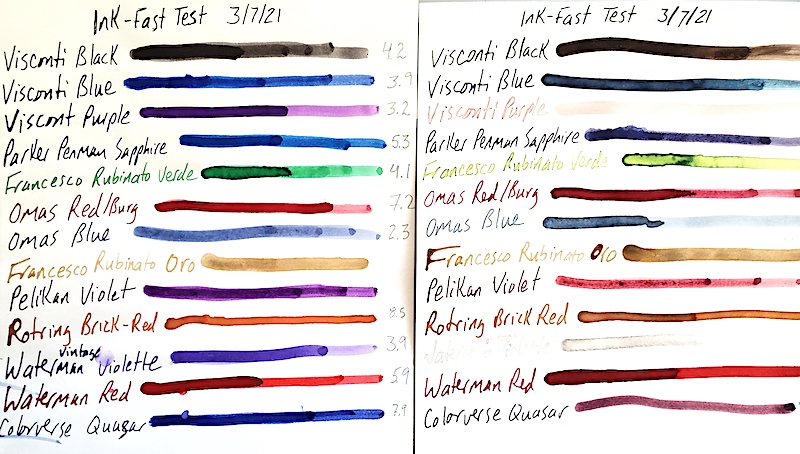 Ink-Fast Test 3/7/21
Visconti Black 4.2
Visconti Blue 3.9
Viscont Purple 3.2
Parker Penman Sapphire 5.3
Francesco Rubinato Verde 4.1
Omas Red/Burg 7.2
Omas Blue 2.3
Francesco Rubinato Oro
Pelikan Violet
Rotring Brick-Red 8.5
Waterman vintage Violette 3.9
Waterman Red 5.9
Colorverse Quasar 7.9
Ink-Fast Test 3/7/21
Visconti Black
Visconti Blue
Visconti Purple
Parker Penman Sapphire
Francesco Rubinato Verde
Omas Red/Burg
Omas Blue
Francesco Rubinato Oro
Pelikan Violet
Rotring Brick Red
Waterman Red
Colorverse Quasar